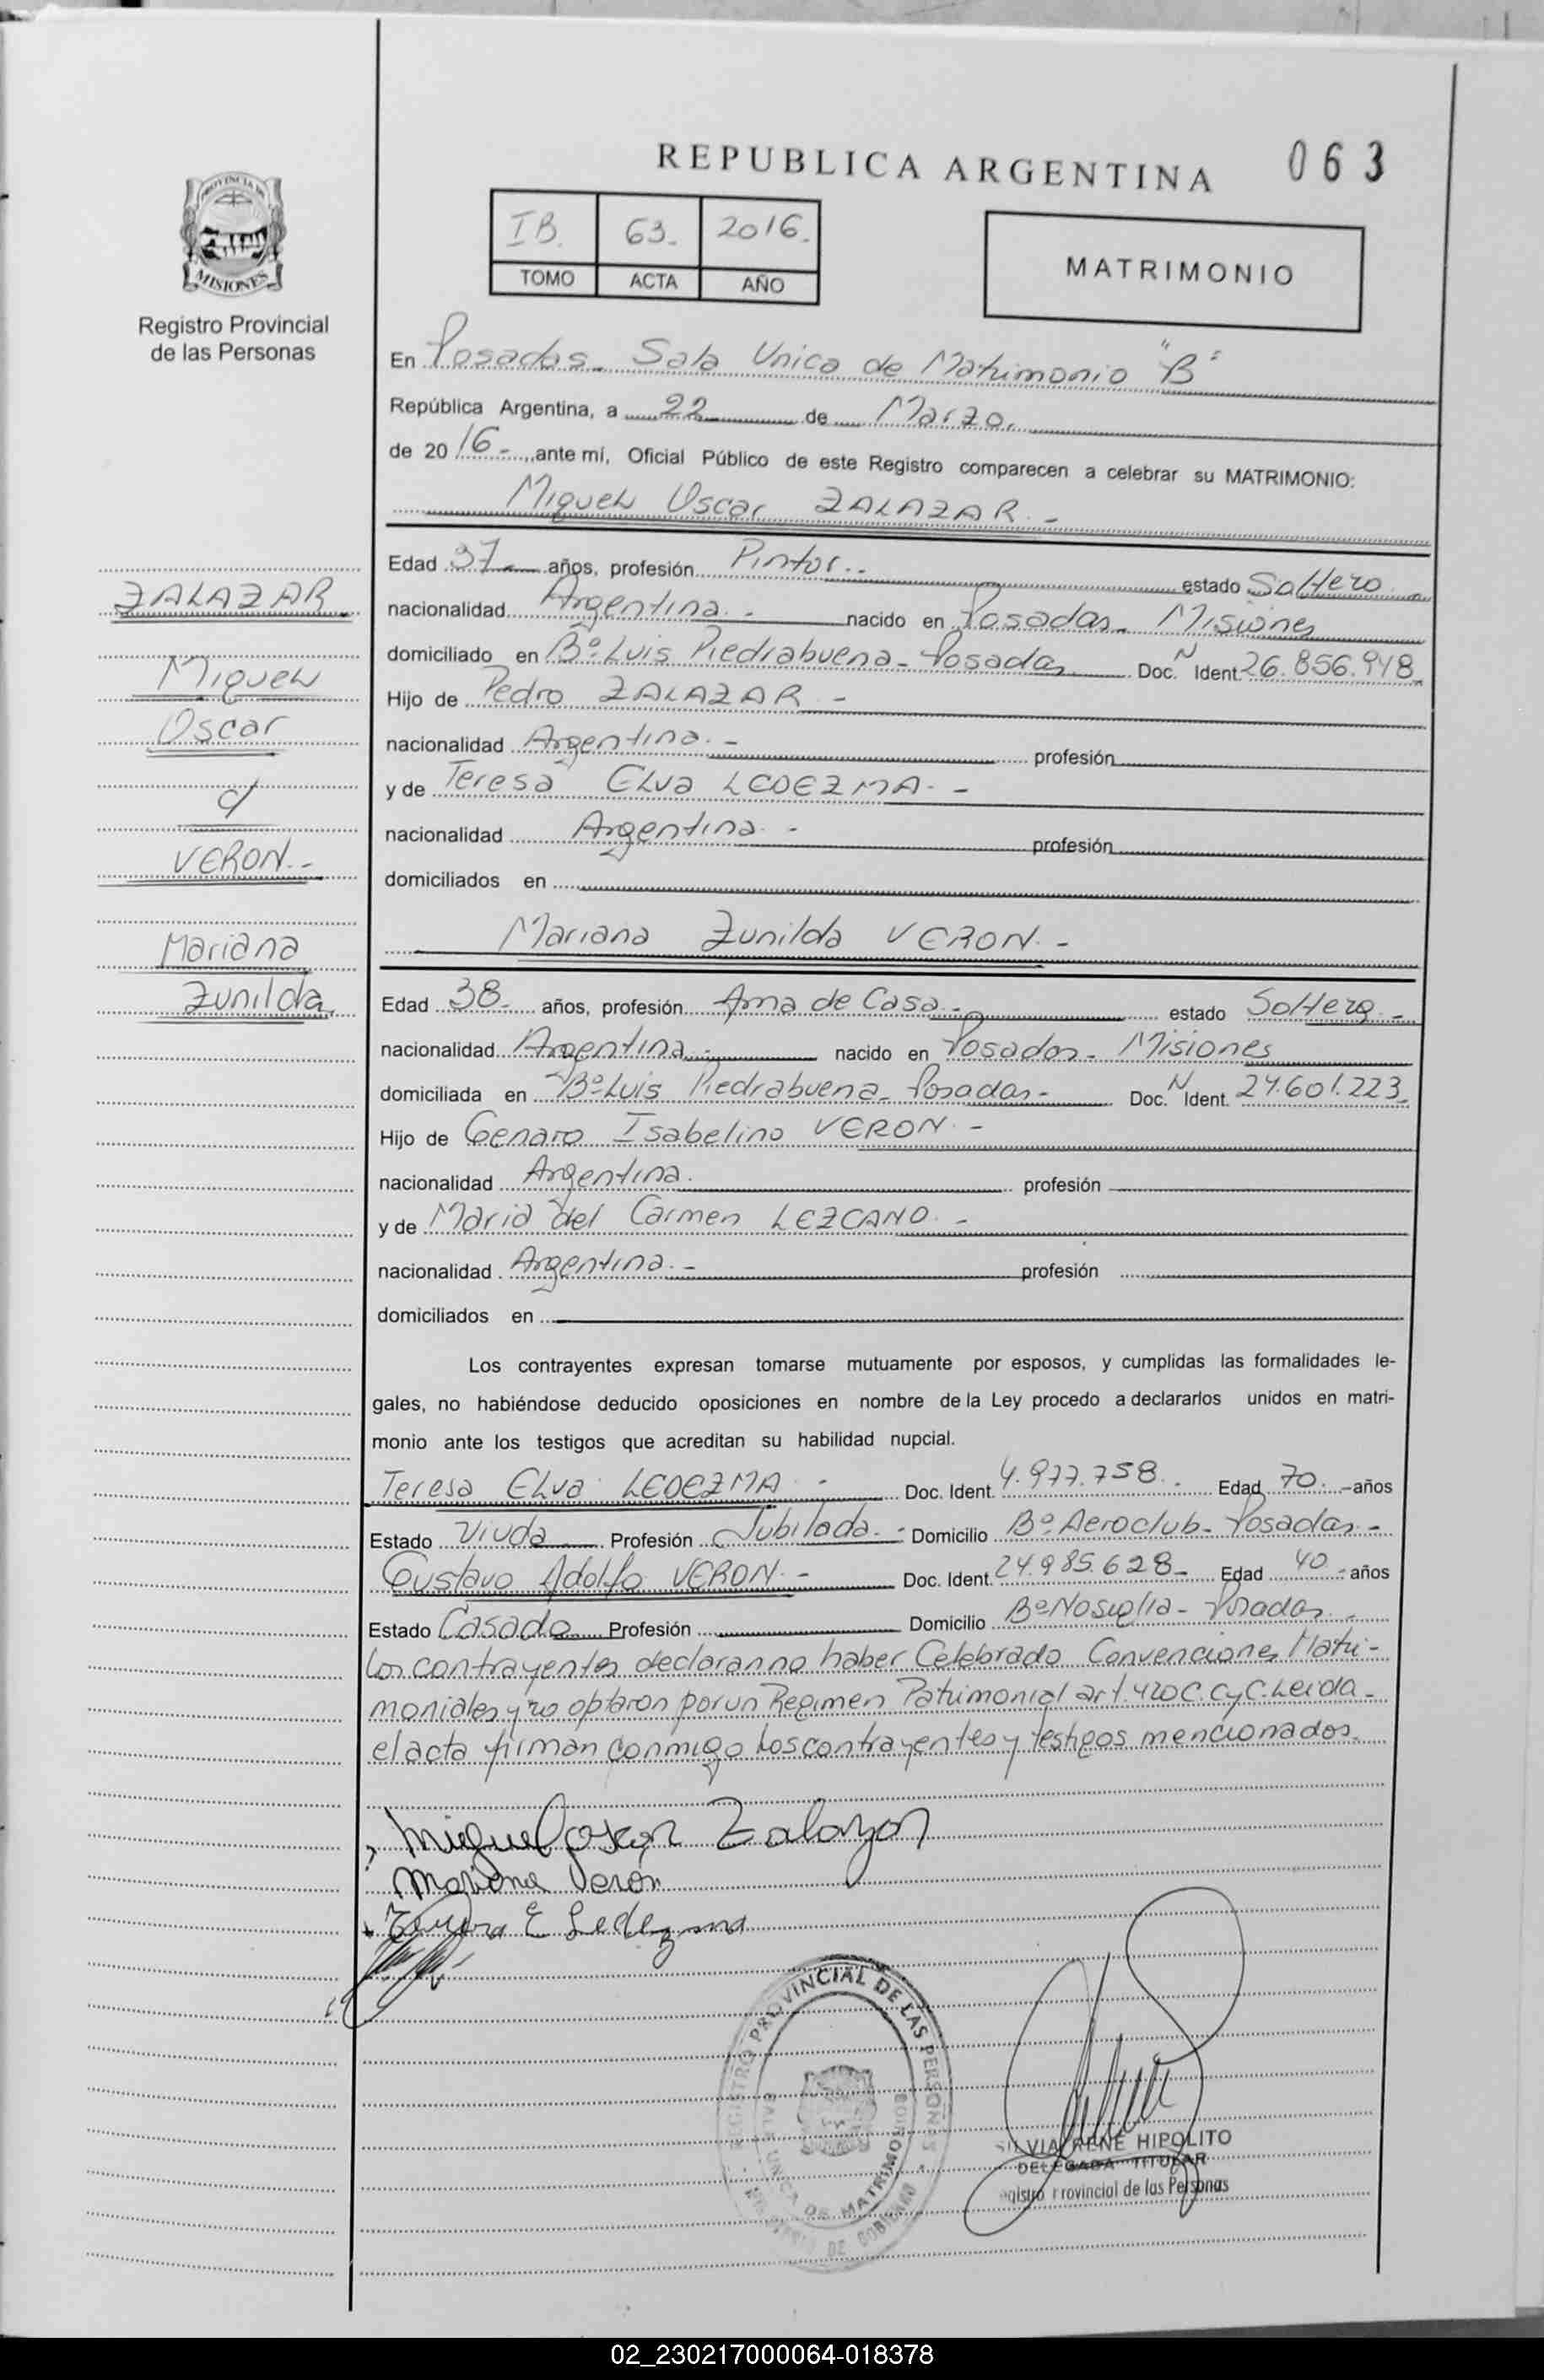 REPUBLICA ARGENTINA 063
PROVINCIA DE
MISIONES
Registro Provincial
de las Personas
IB. 63.- 2016.
TOMO ACTA AÑO
MATRIMONIO
En Posadas. Sala Unica de Matrimonio "B"
República Argentina, a 22 de Marzo.
de 2016-, ante mí, Oficial Público de este Registro comparecen a celebrar su MATRIMONIO:
Miguel Oscar ZALAZAR.-
ZALAZAR
Miguel
Oscar
c/
VERON.-
Mariana
Zunilda
Edad 37 años, profesión Pintor.. estado Soltero
nacionalidad Argentina.- nacido en Posadas- Misiones
domiciliado en Bº Luis Piedrabuena- Posadas Doc. N Ident. 26.856.948
Hijo de Pedro ZALAZAR.-
nacionalidad Argentina.- profesión
y de Teresa Elva LEDEZMA.-
nacionalidad Argentina.- profesión
domiciliados en
Mariana Zunilda VERON.-
Edad 38- años, profesión Ama de Casa.- estado Soltera.-
nacionalidad Argentina.- nacido en Posadas- Misiones
domiciliada en Bº Luis Piedrabuena- Posadas- Doc. N Ident. 27.601.223.
Hijo de Genaro Isabelino VERON.-
nacionalidad Argentina. profesión
y de Maria del Carmen LEZCANO.-
nacionalidad Argentina.- profesión
domiciliados en
Los contrayentes expresan tomarse mutuamente por esposos, y cumplidas las formalidades le-
gales, no habiéndose deducido oposiciones en nombre de la Ley procedo a declararlos unidos en matri-
monio ante los testigos que acreditan su habilidad nupcial.
Teresa Elva LEDEZMA.- Doc. Ident. 4.977.758.- Edad 70.- años
Estado Viuda Profesión Jubilada.- Domicilio Bº Aeroclub- Posadas.-
Gustavo Adolfo VERON.- Doc. Ident. 24.985.628- Edad 40- años
Estado Casado Profesión Domicilio Bº Nosiglia- Posadas.-
Los contrayentes declaran no haber Celebrado Convenciones Matri-
moniales y no optaron por un Regimen Patrimonial art. 420 C. C y C. Leida-
el acta firman conmigo los contrayentes y testigos mencionados.
Miguel oscar Zalazar
Mariana Verón
Teresa E Ledezma
REGISTRO PROVINCIAL DE LAS PERSONAS
SALA UNICA DE MATRIMONIOS
MINISTERIO DE GOBIERNO
SILVIA RENE HIPOLITO
DELEGADA TITULAR
Registro Provincial de las Personas
02_230217000064-018378